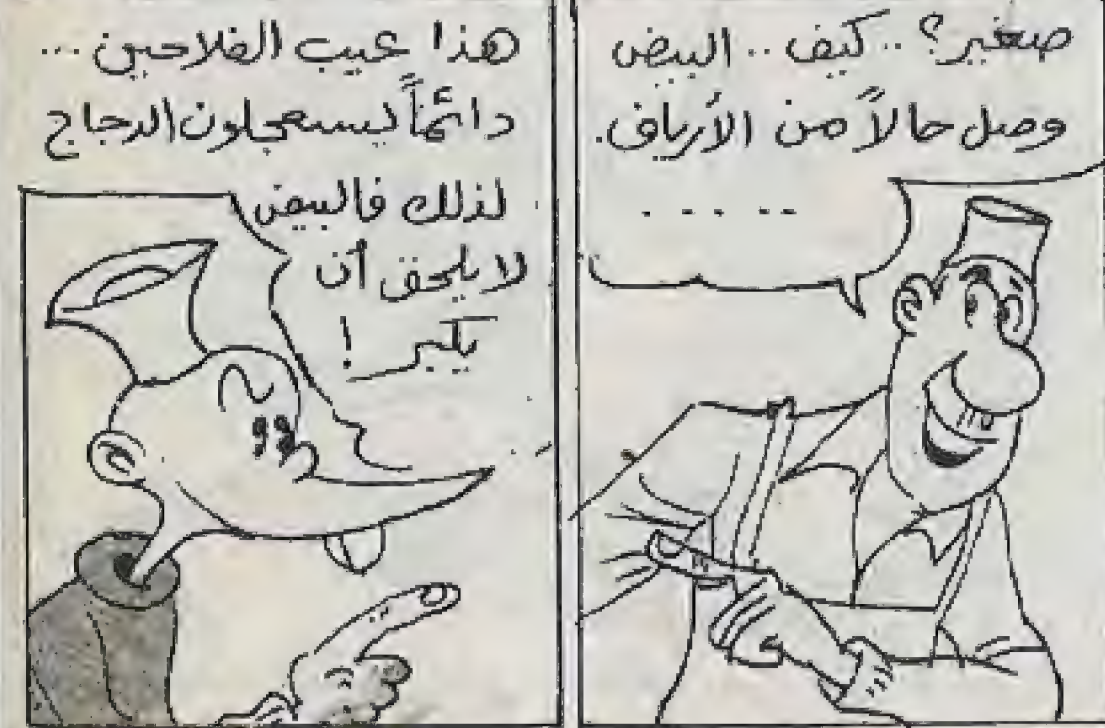 صغير؟.. كيف.. البيض
وصل حالاً من الأرياف.
.....
هذا عيب الفلاحين...
دائماً يستعجلون الدجاج
لذلك فالبيض
لا يلحق أن
يكبر!